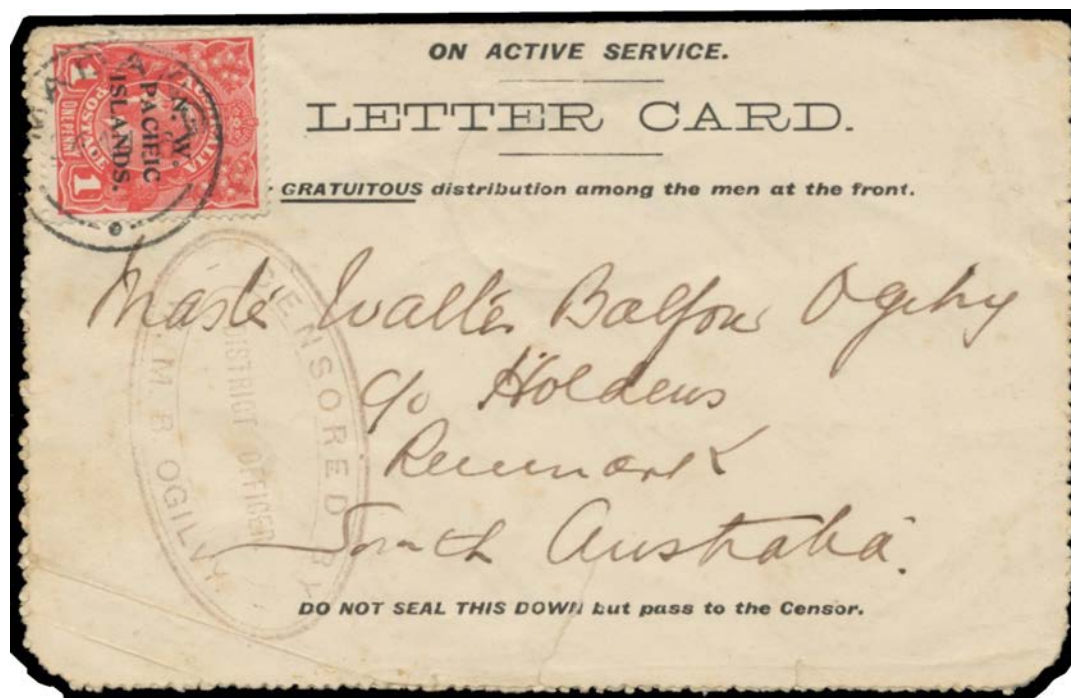 ON ACTIVE SERVICE.
LETTER CARD.
GRATUITOUS distribution among the men at the front.
N. W.
PACIFIC
ISLANDS.
AUSTRALIA
POSTAGE
1 ONE PENNY 1
Master Walter Balfour Ogilvy
c/o Holdens
Renmark
South Australia.
CENSORED BY
DISTRICT OFFICER
M. B. OGILVY
DO NOT SEAL THIS DOWN but pass to the Censor.